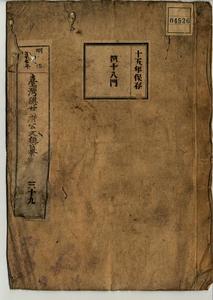 04526
十五年保存
第十八門
明治
臺灣總督府公文類纂
三十九